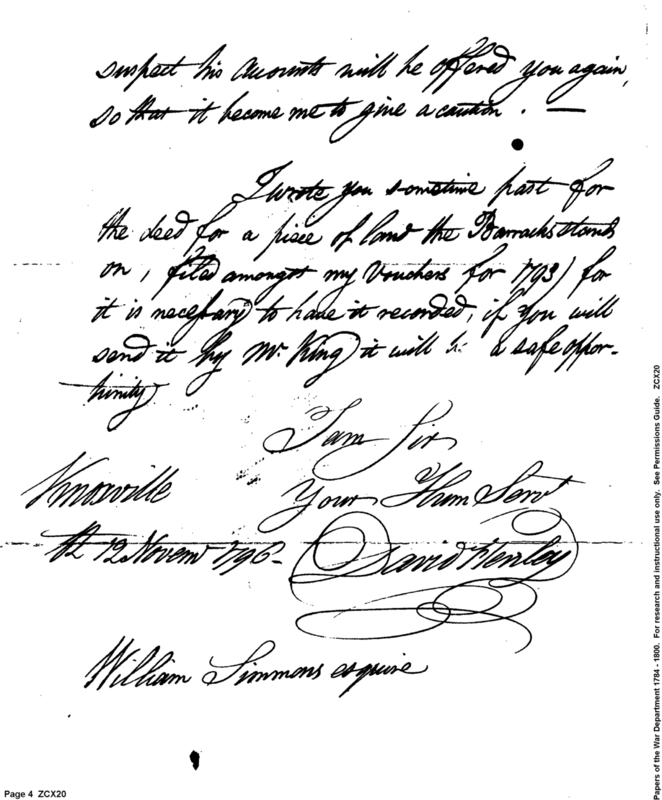 suspect his Accounts will be offered you again,
so that it become me to give a caution . —
I wrote you sometime past for
the deed for a piece of land the Barracks stands
on, filed amongst my Vouchers for 1793) for
it is necessary to have it recorded, if you will
send it by Mr. King it will be a safe oppor-
tunity
I am Sir
Knoxville
Your Hum Servt
12 Novemr 1796-
David Henley
William Simmons esquire
Page 4 ZCX20
Papers of the War Department 1784 - 1800. For research and instructional use only. See Permissions Guide. ZCX20